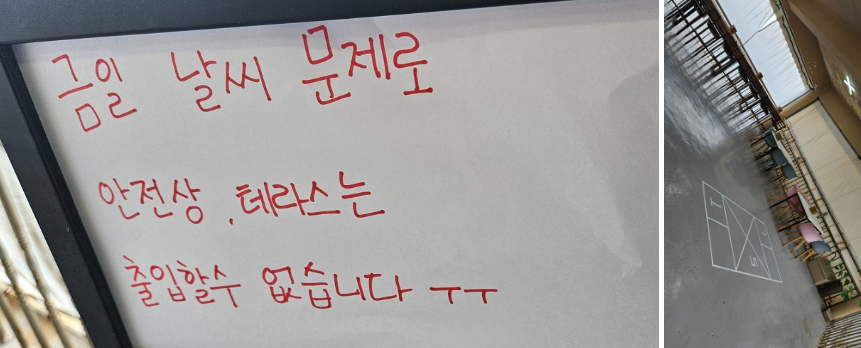 금일 날씨 문제로
안전상, 테라스는
출입할수 없습니다 ㅜㅜ